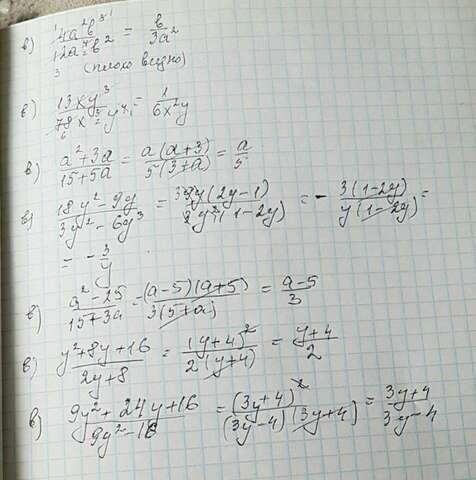 в) 4a²b³ / 12a⁴b² = b / 3a²
3 (плохо видно)
в) 13xy³ / 78x³y⁴ = 1 / 6x²y
в) a²+3a / 15+5a = a(a+3) / 5(3+a) = a / 5
в) 18y²-9y / 3y²-6y³ = 9y(2y-1) / y²(1-2y) = - 3(1-2y) / y(1-2y) =
= - 3 / y
в) a²-25 / 15+3a = (a-5)(a+5) / 3(5+a) = a-5 / 3
в) y²+8y+16 / 2y+8 = (y+4)² / 2(y+4) = y+4 / 2
в) 9y²+24y+16 / 9y²-16 = (3y+4)² / (3y-4)(3y+4) = 3y+4 / 3y-4